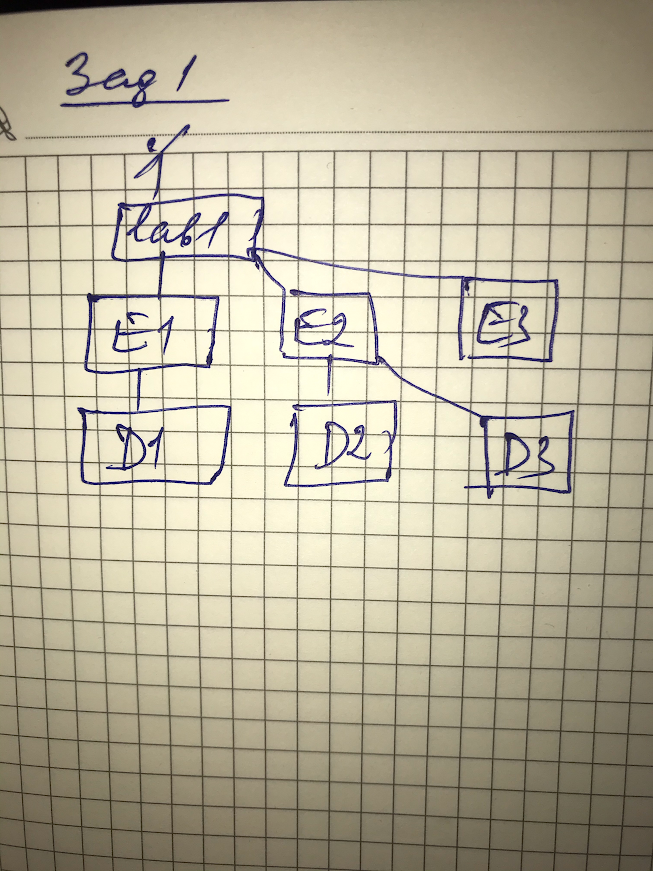 Зад 1
lab1
E1 E2 E3
D1 D2 D3